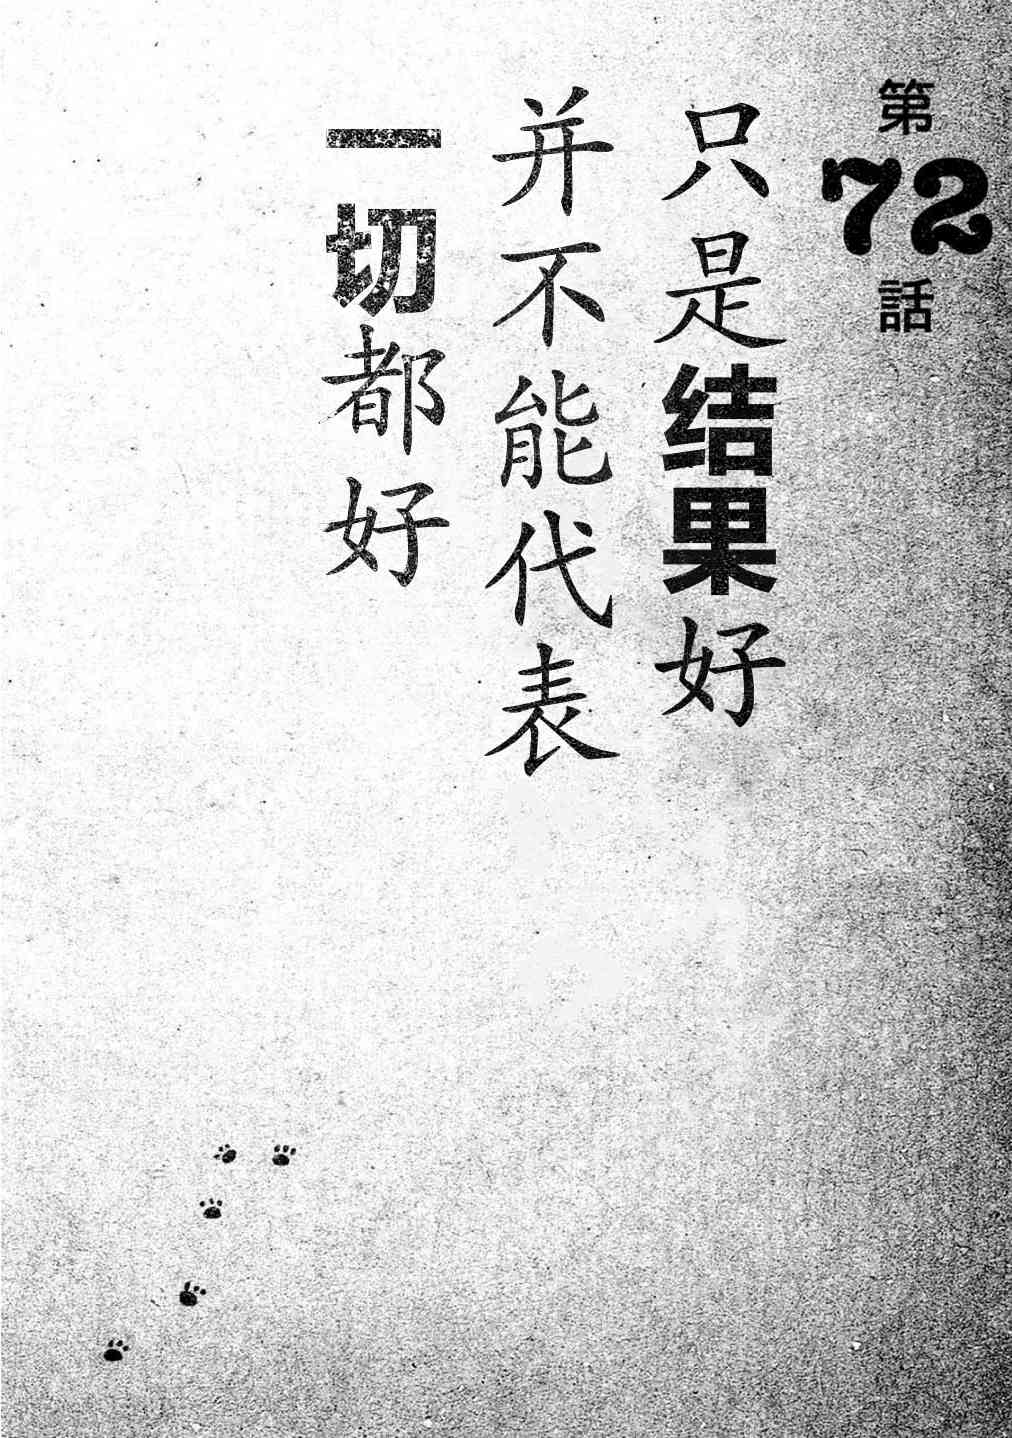 第72話
只是结果好
并不能代表
一切都好